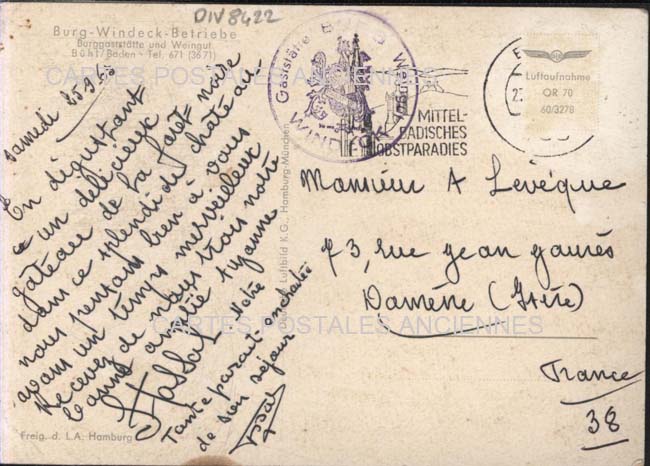 DIV 8422
Burg-Windeck-Betriebe
Burggaststätte und Weingut
Bühl/Baden - Tel. 671 (3671)
samedi 25.9.65
En dégustant
ce un délicieux
gâteau de la forêt-noire
dans ce splendide château
nous pensons bien à vous
avons un temps merveilleux
Recevez de nous trois notre
bonne amitié Suzanne
Votre
Tante parait enchantée
de son séjour
Freig. d. L.A. Hamburg
Luftbild K.G., Hamburg-München
Gaststätte BURG Weingut
WINDECK
MITTEL-
BADISCHES
OBSTPARADIES
Luftaufnahme
OR 70
60/3278
Monsieur A Levêque
73, rue Jean Jaurès
Domène (Isère)
France
38
CARTES POSTALES ANCIENNES
CARTES POSTALES ANCIENNES